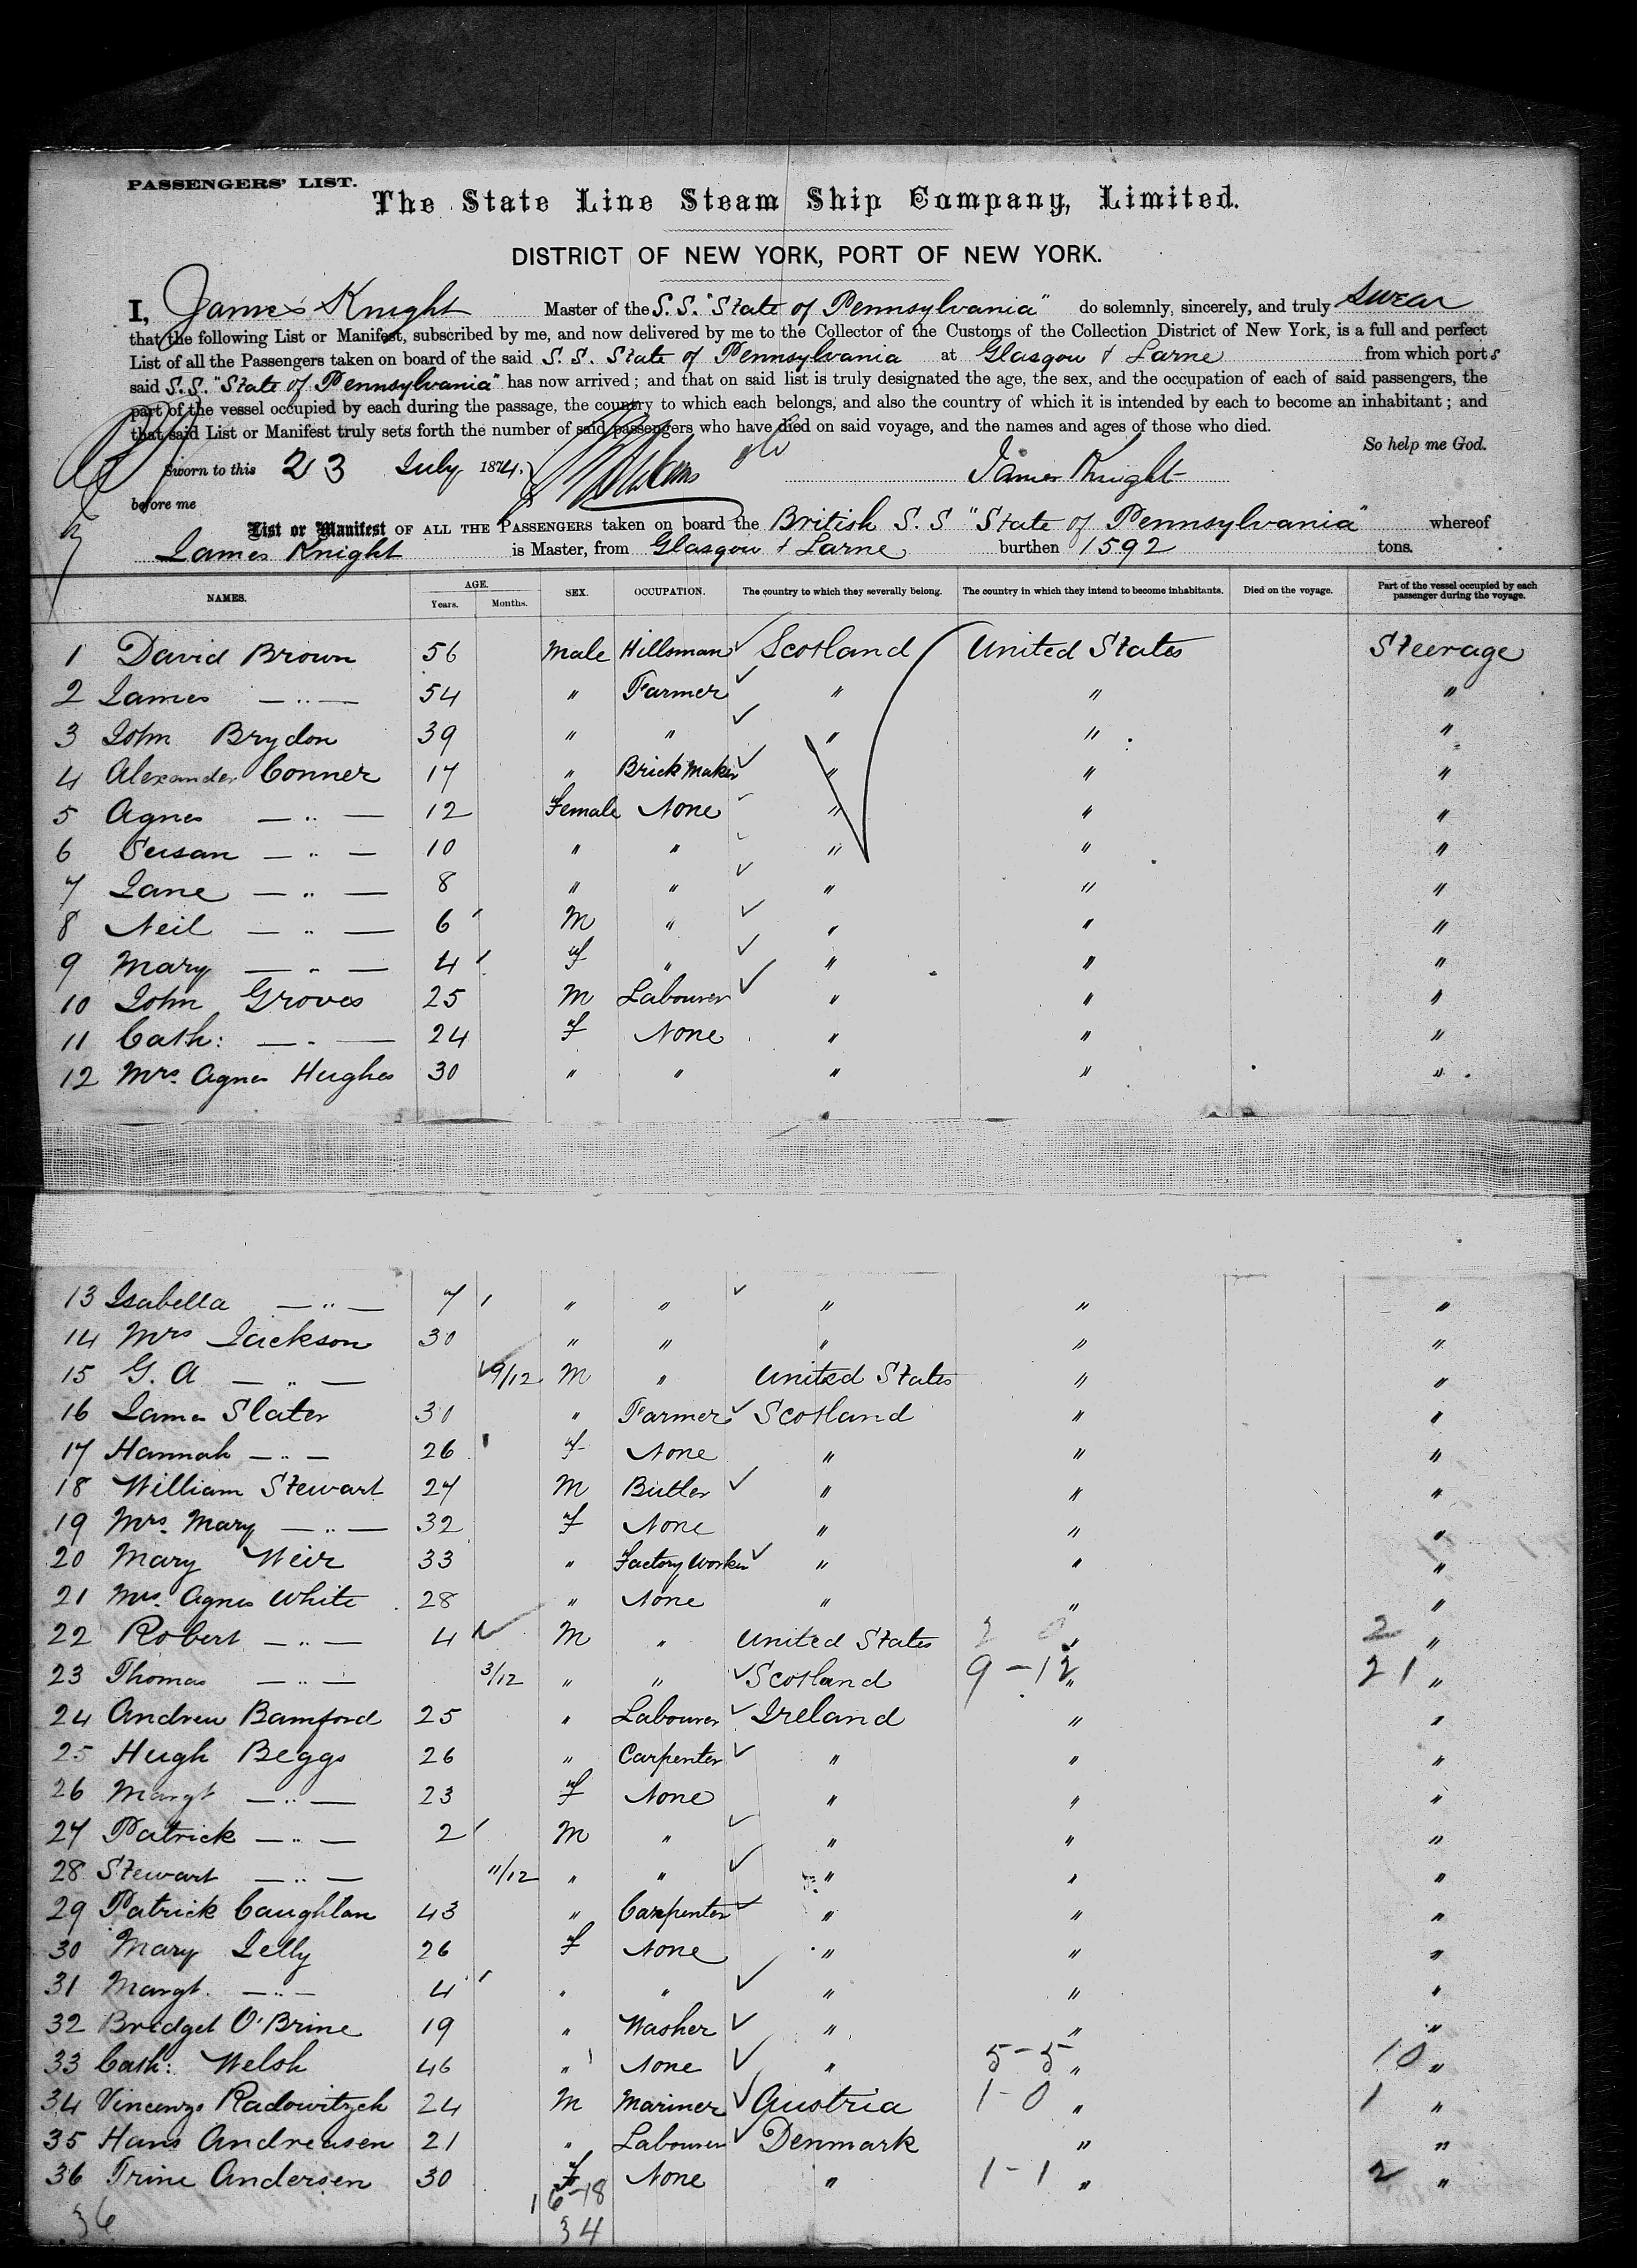 PASSENGERS' LIST.
The State Line Steam Ship Company, Limited.
DISTRICT OF NEW YORK, PORT OF NEW YORK.
I, James Knight Master of the S.S. "State of Pennsylvania" do solemnly, sincerely, and truly swear
that the following List or Manifest, subscribed by me, and now delivered by me to the Collector of the Customs of the Collection District of New York, is a full and perfect
List of all the Passengers taken on board of the said S.S. State of Pennsylvania at Glasgow & Larne from which ports
said S.S. "State of Pennsylvania" has now arrived; and that on said list is truly designated the age, the sex, and the occupation of each of said passengers, the
part of the vessel occupied by each during the passage, the country to which each belongs, and also the country of which it is intended by each to become an inhabitant; and
that said List or Manifest truly sets forth the number of said passengers who have died on said voyage, and the names and ages of those who died.
So help me God.
Sworn to this 23 July 1874. James Knight
before me
List or Manifest OF ALL THE PASSENGERS taken on board the British S.S "State of Pennsylvania" whereof
James Knight is Master, from Glasgow & Larne burthen 1592 tons.
NAMES. AGE. Years. Months. SEX. OCCUPATION. The country to which they severally belong. The country in which they intend to become inhabitants. Died on the voyage. Part of the vessel occupied by each passenger during the voyage.
1 David Brown 56 Male Hillsman Scotland United States Steerage
2 James — " — 54 " Farmer " " "
3 John Brydon 39 " " " " "
4 Alexander Conner 17 " Brick Maker " " "
5 Agnes — " — 12 Female None " " "
6 Susan — " — 10 " " " " "
7 Jane — " — 8 " " " " "
8 Neil — " — 6 M " " " "
9 Mary — " — 4 f " " " "
10 John Groves 25 M Labourer " " "
11 Cath: — " — 24 f None " " "
12 Mrs. Agnes Hughes 30 " " " " "
13 Isabella — " — 7 " " " " "
14 Mrs Jackson 30 " " " " "
15 G. A — " — 9/12 M " United States " "
16 James Slater 30 " Farmer Scotland " "
17 Hannah — " — 26 f None " " "
18 William Stewart 24 M Butler " " "
19 Mrs. Mary — " — 32 f None " " "
20 Mary Weir 33 " Factory Worker " " "
21 Mrs. Agnes White 28 " None " " "
22 Robert — " — 4 M " United States " 2 "
23 Thomas — " — 3/12 " " Scotland 9-12 " 21 "
24 Andrew Bamford 25 " Labourer Ireland " "
25 Hugh Beggs 26 " Carpenter " " "
26 Margt — " — 23 f None " " "
27 Patrick — " — 2 M " " " "
28 Stewart — " — 11/12 " " " " "
29 Patrick Caughlan 43 " Carpenter " " "
30 Mary Jelly 26 f None " " "
31 Margt. — " — 4 " " " " "
32 Bredget O'Brine 19 " Washer " " "
33 Cath: Welsh 46 " None " 5-5 " 10 "
34 Vincenzo Radowitzch 24 M Mariner Austria 1-0 " 1 "
35 Hans Andreasen 21 " Labourer Denmark " "
36 Trine Andersen 30 f None " 1-1 " 2 "
16-18
36 34